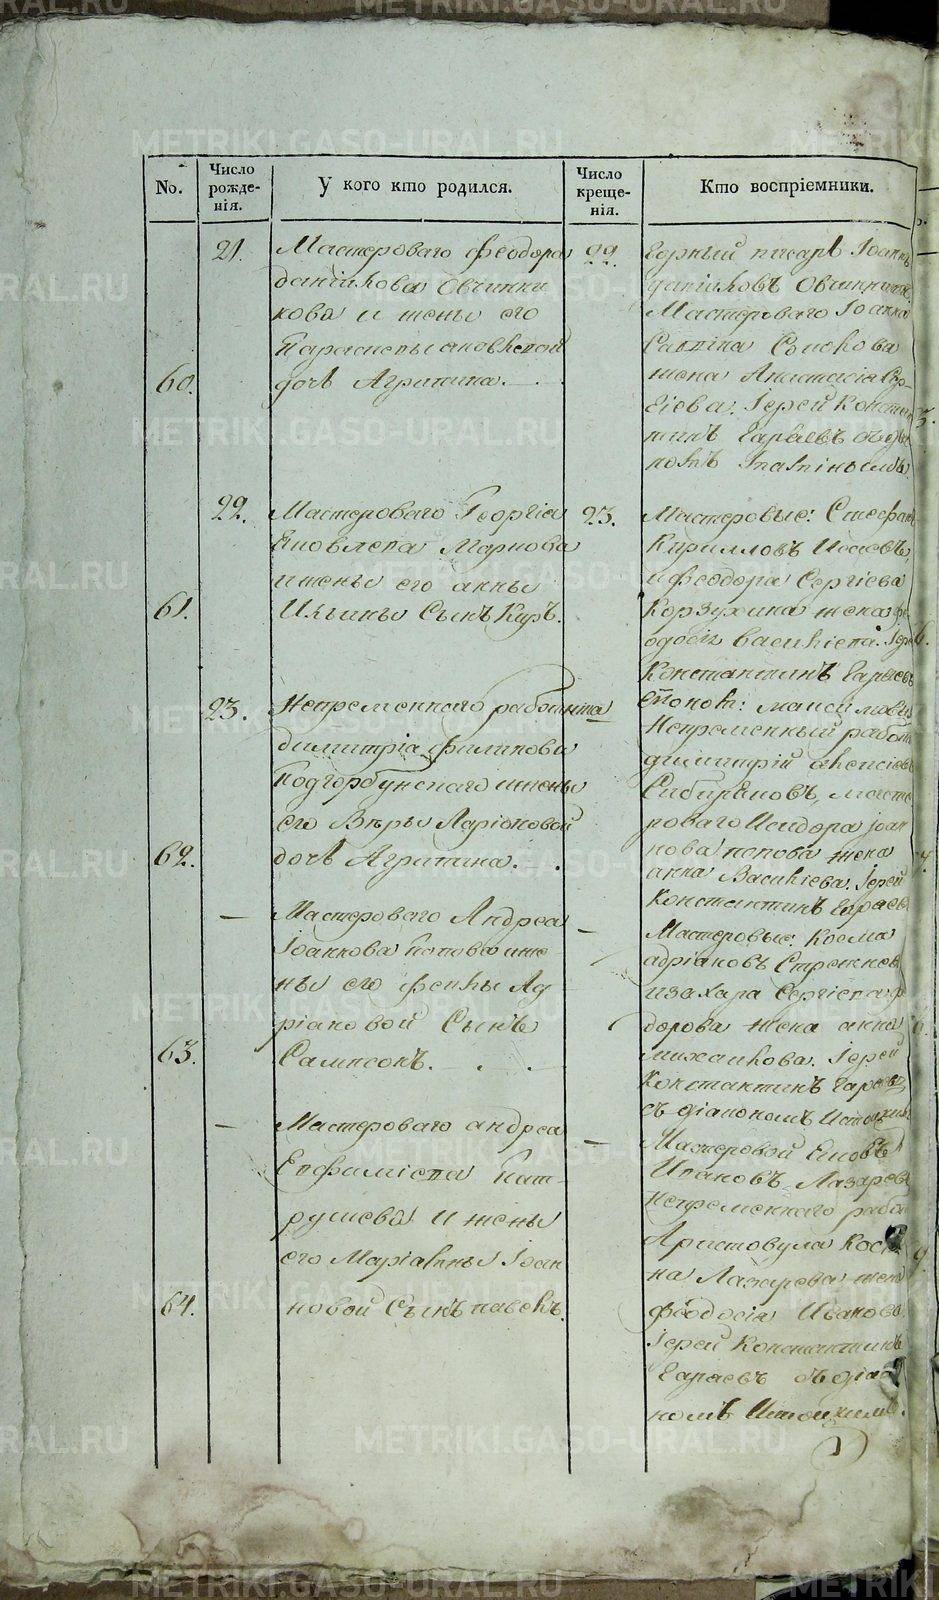 No.
Число рожде-нія.
У кого кто родился.
Число креще-нія.
Кто воспріемники.
60.
21.
Мастероваго Феодора
Данилова Овчинни
кова и жены его
дочь Агрипина.
22.
Горный писарь Іоаннъ
Даниловъ Овчинниковъ
Мастероваго Іоанна
жена Анастасія Сер-
гіева. Іерей Констан
тинъ
61.
22.
Мастероваго Георгіа
Яковлева Маркова
и жены его анны
Ильины Сынъ Киръ.
23.
Мастеровые: Стефанъ
Кирилловъ Исаевъ,
и Феодора Сергіева
Корзухина жена Фе
одосія василіева. Іерей
Константинъ
62.
23.
Непременнаго работника
димитріа филипова
Подгорбунскаго и жены
его Вѣры Ларіоновой
дочь Агрипина.
Непременный работн
димитрій алексіевъ
Сибиряковъ, масте
роваго Исидора іоан
нова попова жена
анна Василіева. Іерей
Константинъ
63.
—
Мастероваго Андреа
Іоаннова Попова и же
ны его феклы Ад
ріановой Сынъ
Сампсонъ.
—
Мастеровые: Косма
адріановъ Стрежнев
и захара Сергіева Фе
дорова жена анна
михаилова. Іерей
Константинъ
съ діакономъ
64.
—
Мастероваго андреа
Евфиміева Пат-
рушева и жены
его Маріанны Іоан
новой Сынъ павелъ.
—
Мастеровой Яковъ
Ивановъ Лазарев
Непременнаго раб
Аристовула Кос
на Лазарева жен
феодосія Иванова
Іерей Константинъ
съ діако
номъ
METRIKI.GASO-URAL.RU